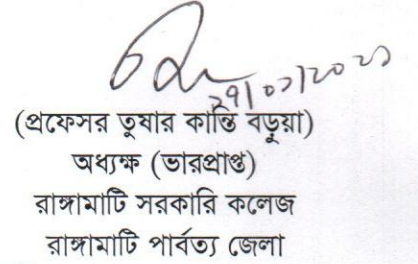 (প্রফেসর তুষার কান্তি বড়ুয়া)
অধ্যক্ষ (ভারপ্রাপ্ত)
রাঙ্গামাটি সরকারি কলেজ
রাঙ্গামাটি পার্বত্য জেলা